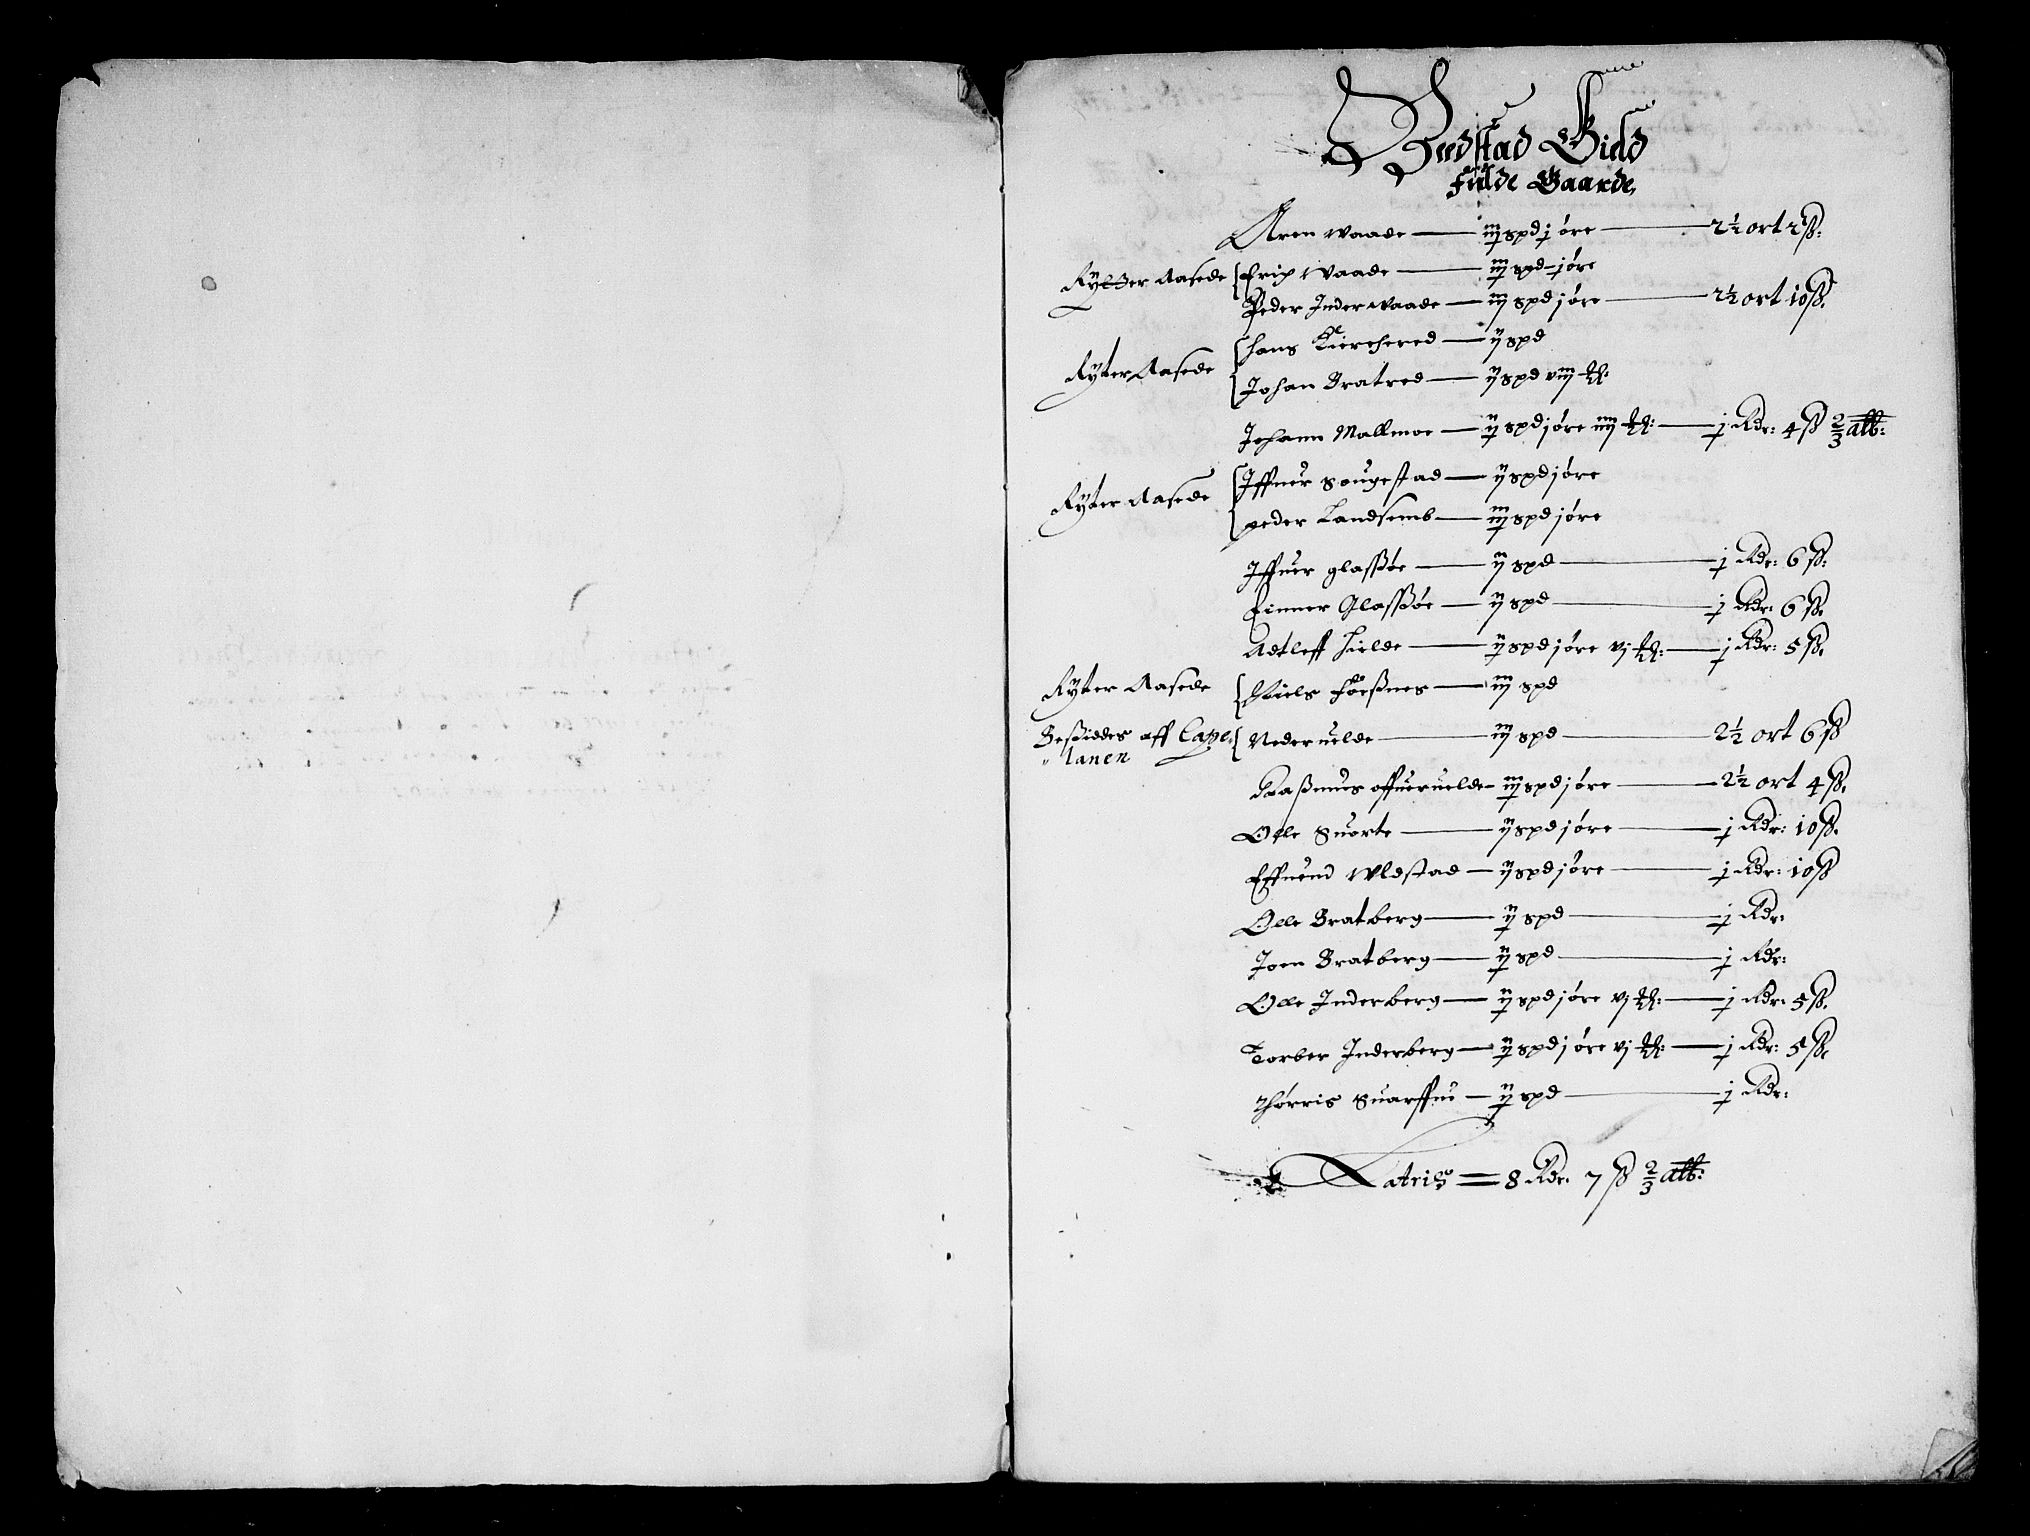 Beedstad Gield
Fulde Gaarde,
Aren Waade — iij spd j øre — 2½ ort 2ß:
Rytter Aasede { Erix Waade — iij spd j øre
Peder Inderwaade — iij spd j øre — 2½ ort 10ß.
Ryter Aasede { Hans Kirchered — ij spd
Johan Bratred — ij spd viij
Johann Mallmoe — ij spd j øre iiij — j Rdr: 4ß ⅔ alb:
Ryter Aasede { Iffuer Sougestad — ij spd j øre
peder Landsemb — iij spd j øre
Iffuer glaßøe — ij spd — j Rdr: 6ß:
Einner Glaßøe — ij spd — j Rdr: 6ß.
Adtleff Hielde — ij spd j øre vj — j Rdr: 5ß.
Ryter Aasede { Niels Foeßnes — iij spd
Besiddes aff Cape: { Neder uelde — iij spd — 2½ ort 6ß
" lanen
Raaßmus offueruelde — iij spd j øre — 2½ ort 4ß.
Olle Suorte — ij spd j øre — j Rdr: 10ß.
Effuend Wldstad — ij spd j øre — j Rdr: 10ß
Olle Bratberg — ij spd — j Rdr:
Joen Bratberg — ij spd — j Rdr:
Olle Inderberg — ij spd j øre vj — j Rdr: 5ß.
Torber Inderberg — ij spd j øre vj — j Rdr: 5ß.
Thørris Suarffue — ij spd — j Rdr:
Lateris = 8 Rdr. 7ß ⅔ alb: